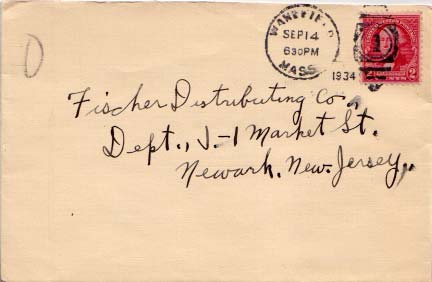 WAKEFIELD
SEP 14
630 PM
1934
MASS.
1
2 CENTS 2
Fischer Distributing Co.,
Dept., J-1 Market St.
Newark, New Jersey,